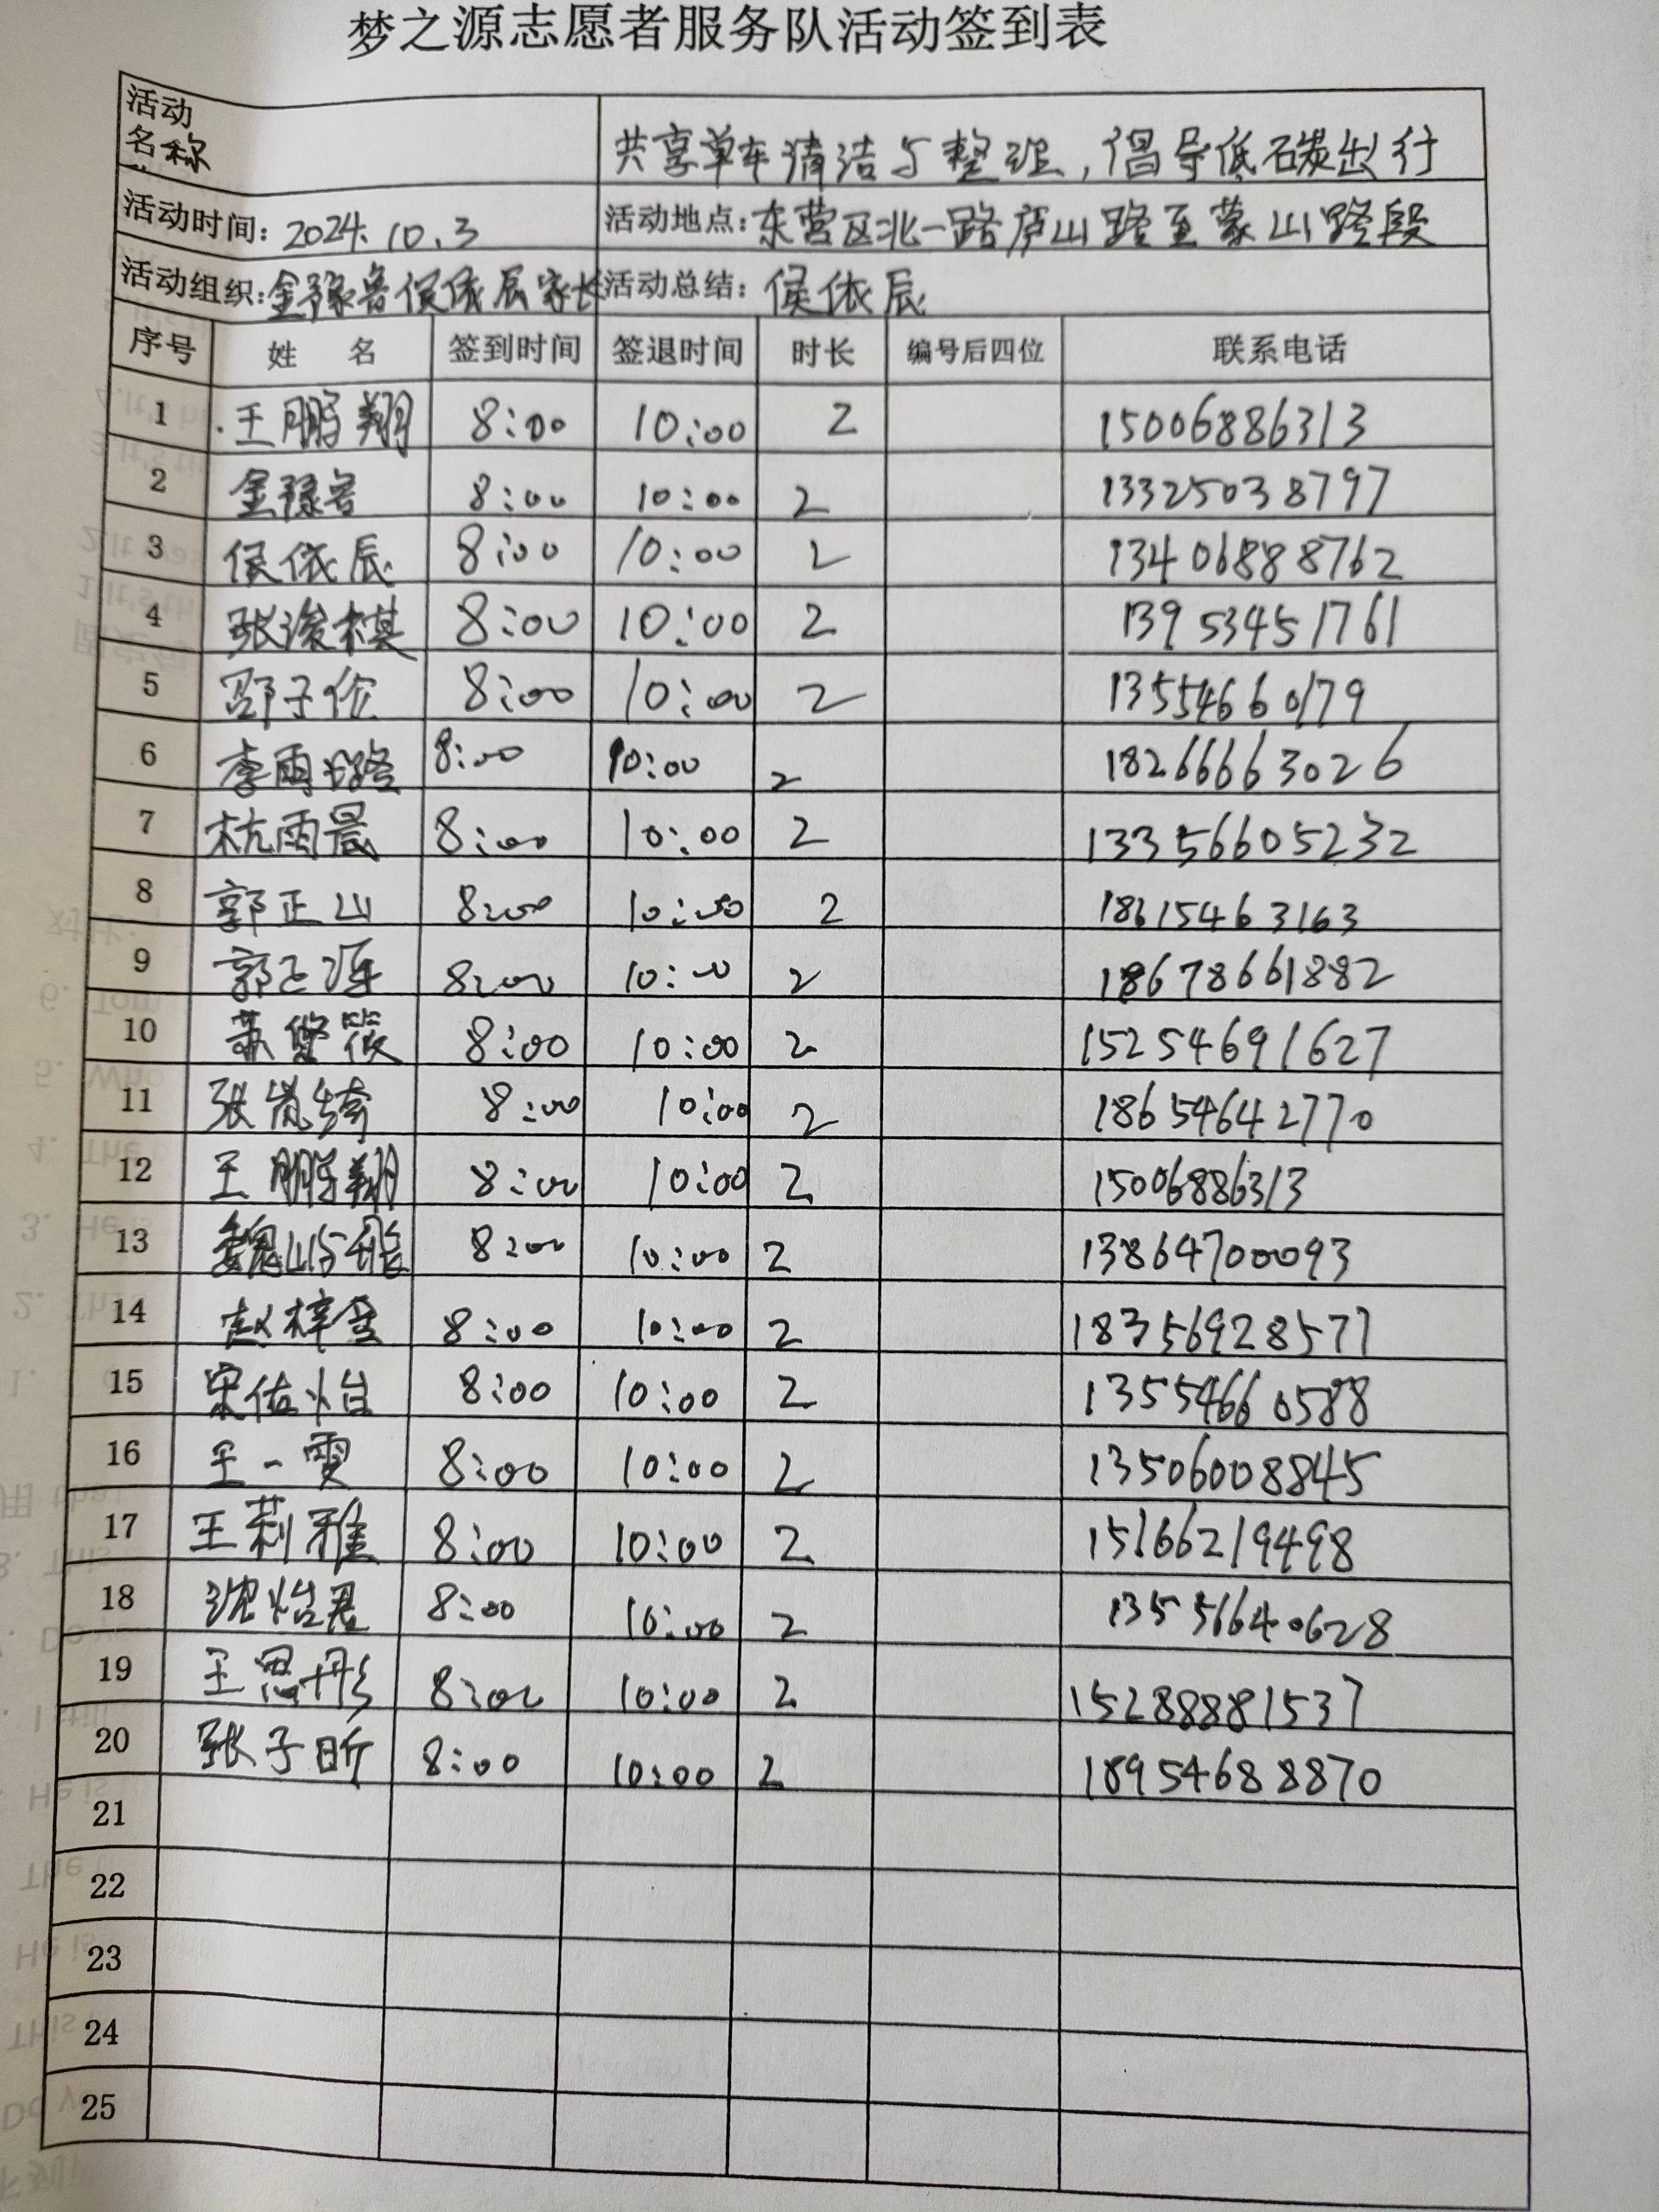 梦之源志愿者服务队活动签到表
活动
名称
共享单车清洁与整理,倡导低碳出行
活动时间: 2024.10.3 活动地点: 东营区北一路庐山路至蒙山路段
活动组织: 金豫鲁侯依辰家长 活动总结: 侯依辰
序号 姓 名 签到时间 签退时间 时长 编号后四位 联系电话
1 王鹏翔 8:00 10:00 2 15006886313
2 金豫鲁 8:00 10:00 2 13325038797
3 侯依辰 8:00 10:00 2 13406888762
4 张浚棋 8:00 10:00 2 13953451761
5 邵子伦 8:00 10:00 2 13554660179
6 李雨璐 8:00 10:00 2 18266663026
7 杭雨晨 8:00 10:00 2 13356605232
8 郭正山 8:00 10:00 2 18615463163
9 郭正源 8:00 10:00 2 18678661882
10 苏悠筱 8:00 10:00 2 15254691627
11 张 8:00 10:00 2 18654642770
12 王鹏翔 8:00 10:00 2 15006886313
13 魏 8:00 10:00 2 13864700093
14 赵梓 8:00 10:00 2 18356928577
15 宋佑怡 8:00 10:00 2 13554660588
16 王一雯 8:00 10:00 2 13506008845
17 王莉雅 8:00 10:00 2 15166219498
18 沈怡君 8:00 10:00 2 13556640628
19 王思彤 8:00 10:00 2 15288881537
20 张子昕 8:00 10:00 2 18954688870
21
22
23
24
25